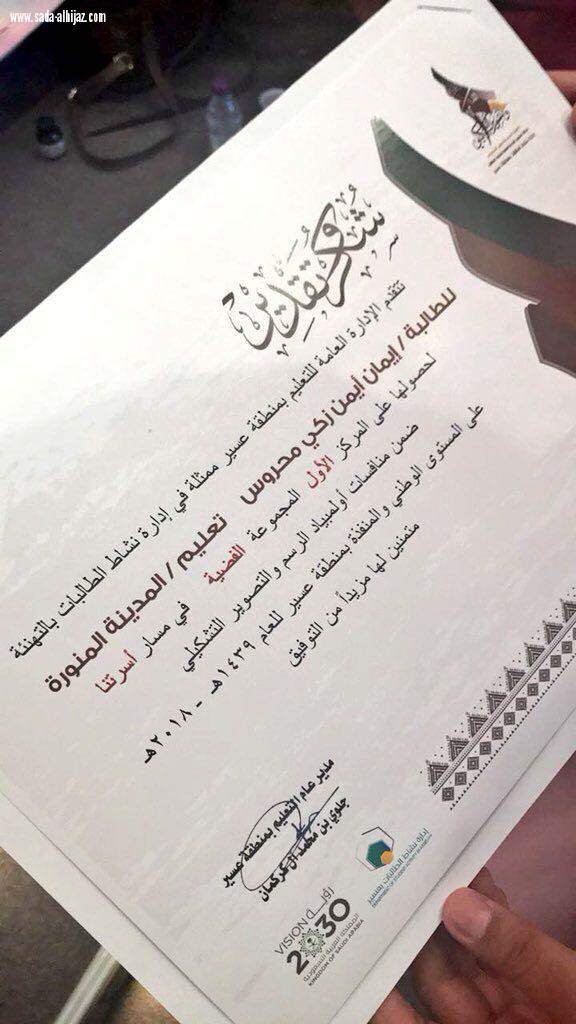 www.sada-alhijaz.com
شكر وتقدير
تتقدم الإدارة العامة للتعليم بمنطقة عسير ممثلة في إدارة نشاط الطالبات بالتهنئة
للطالبة / إيمان أيمن زكي محروس تعليم / المدينة المنورة
لحصولها على المركز الأول المجموعة الفضية في مسار أسرتنا
ضمن منافسات أولمبياد الرسم والتصوير التشكيلي
على المستوى الوطني والمنفذة بمنطقة عسير للعام ١٤٣٩هـ - ٢٠١٨هـ
متمنين لها مزيداً من التوفيق
مدير عام التعليم بمنطقة عسير
جلوي بن محمد آل كركمان
إدارة نشاط الطالبات بعسير
رؤية VISION
2030
المملكة العربية السعودية
KINGDOM OF SAUDI ARABIA